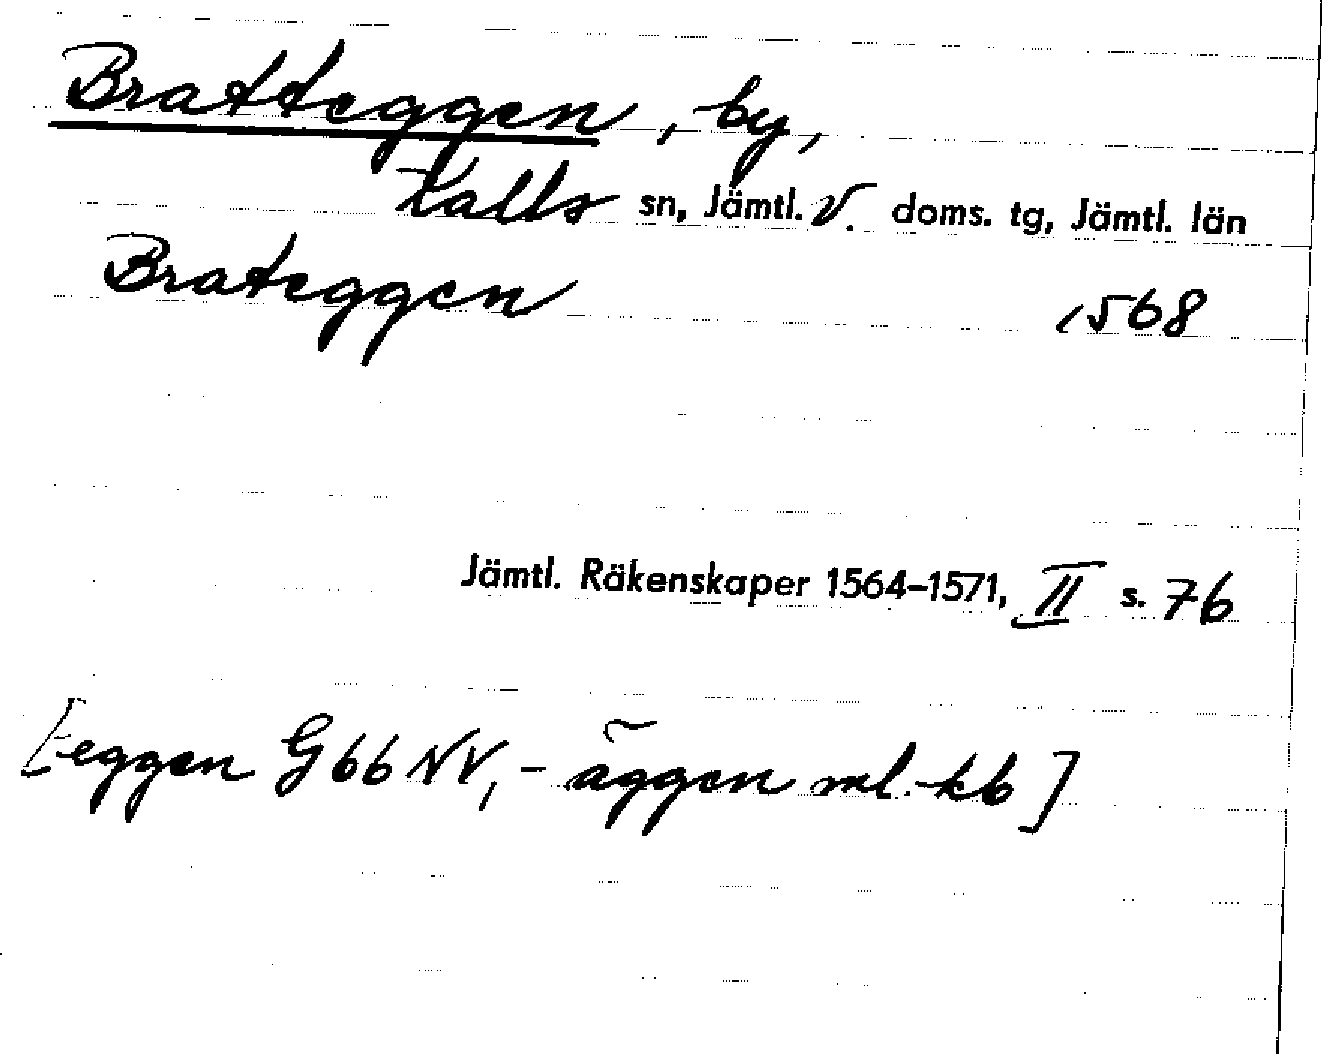 Bratteggen, by,
Kalls sn, Jämtl. V. doms. tg, Jämtl. län
Brateggen 1568
Jämtl. Räkenskaper 1564–1571, II s. 76
[-eggen G 66 NV, -äggen ml. kb]